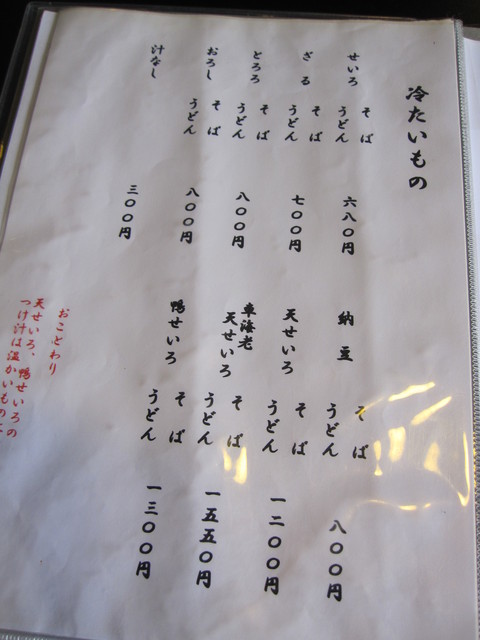 冷たいもの
せいろ そば うどん 六八〇円
ざる そば うどん 七〇〇円
とろろ そば うどん 八〇〇円
おろし そば うどん 八〇〇円
汁なし 三〇〇円
納豆 そば うどん 八〇〇円
天せいろ そば うどん 一二〇〇円
車海老 天せいろ そば うどん 一五五〇円
鴨せいろ そば うどん 一三〇〇円
おことわり
天せいろ、鴨せいろの
つけ汁は温かいものに